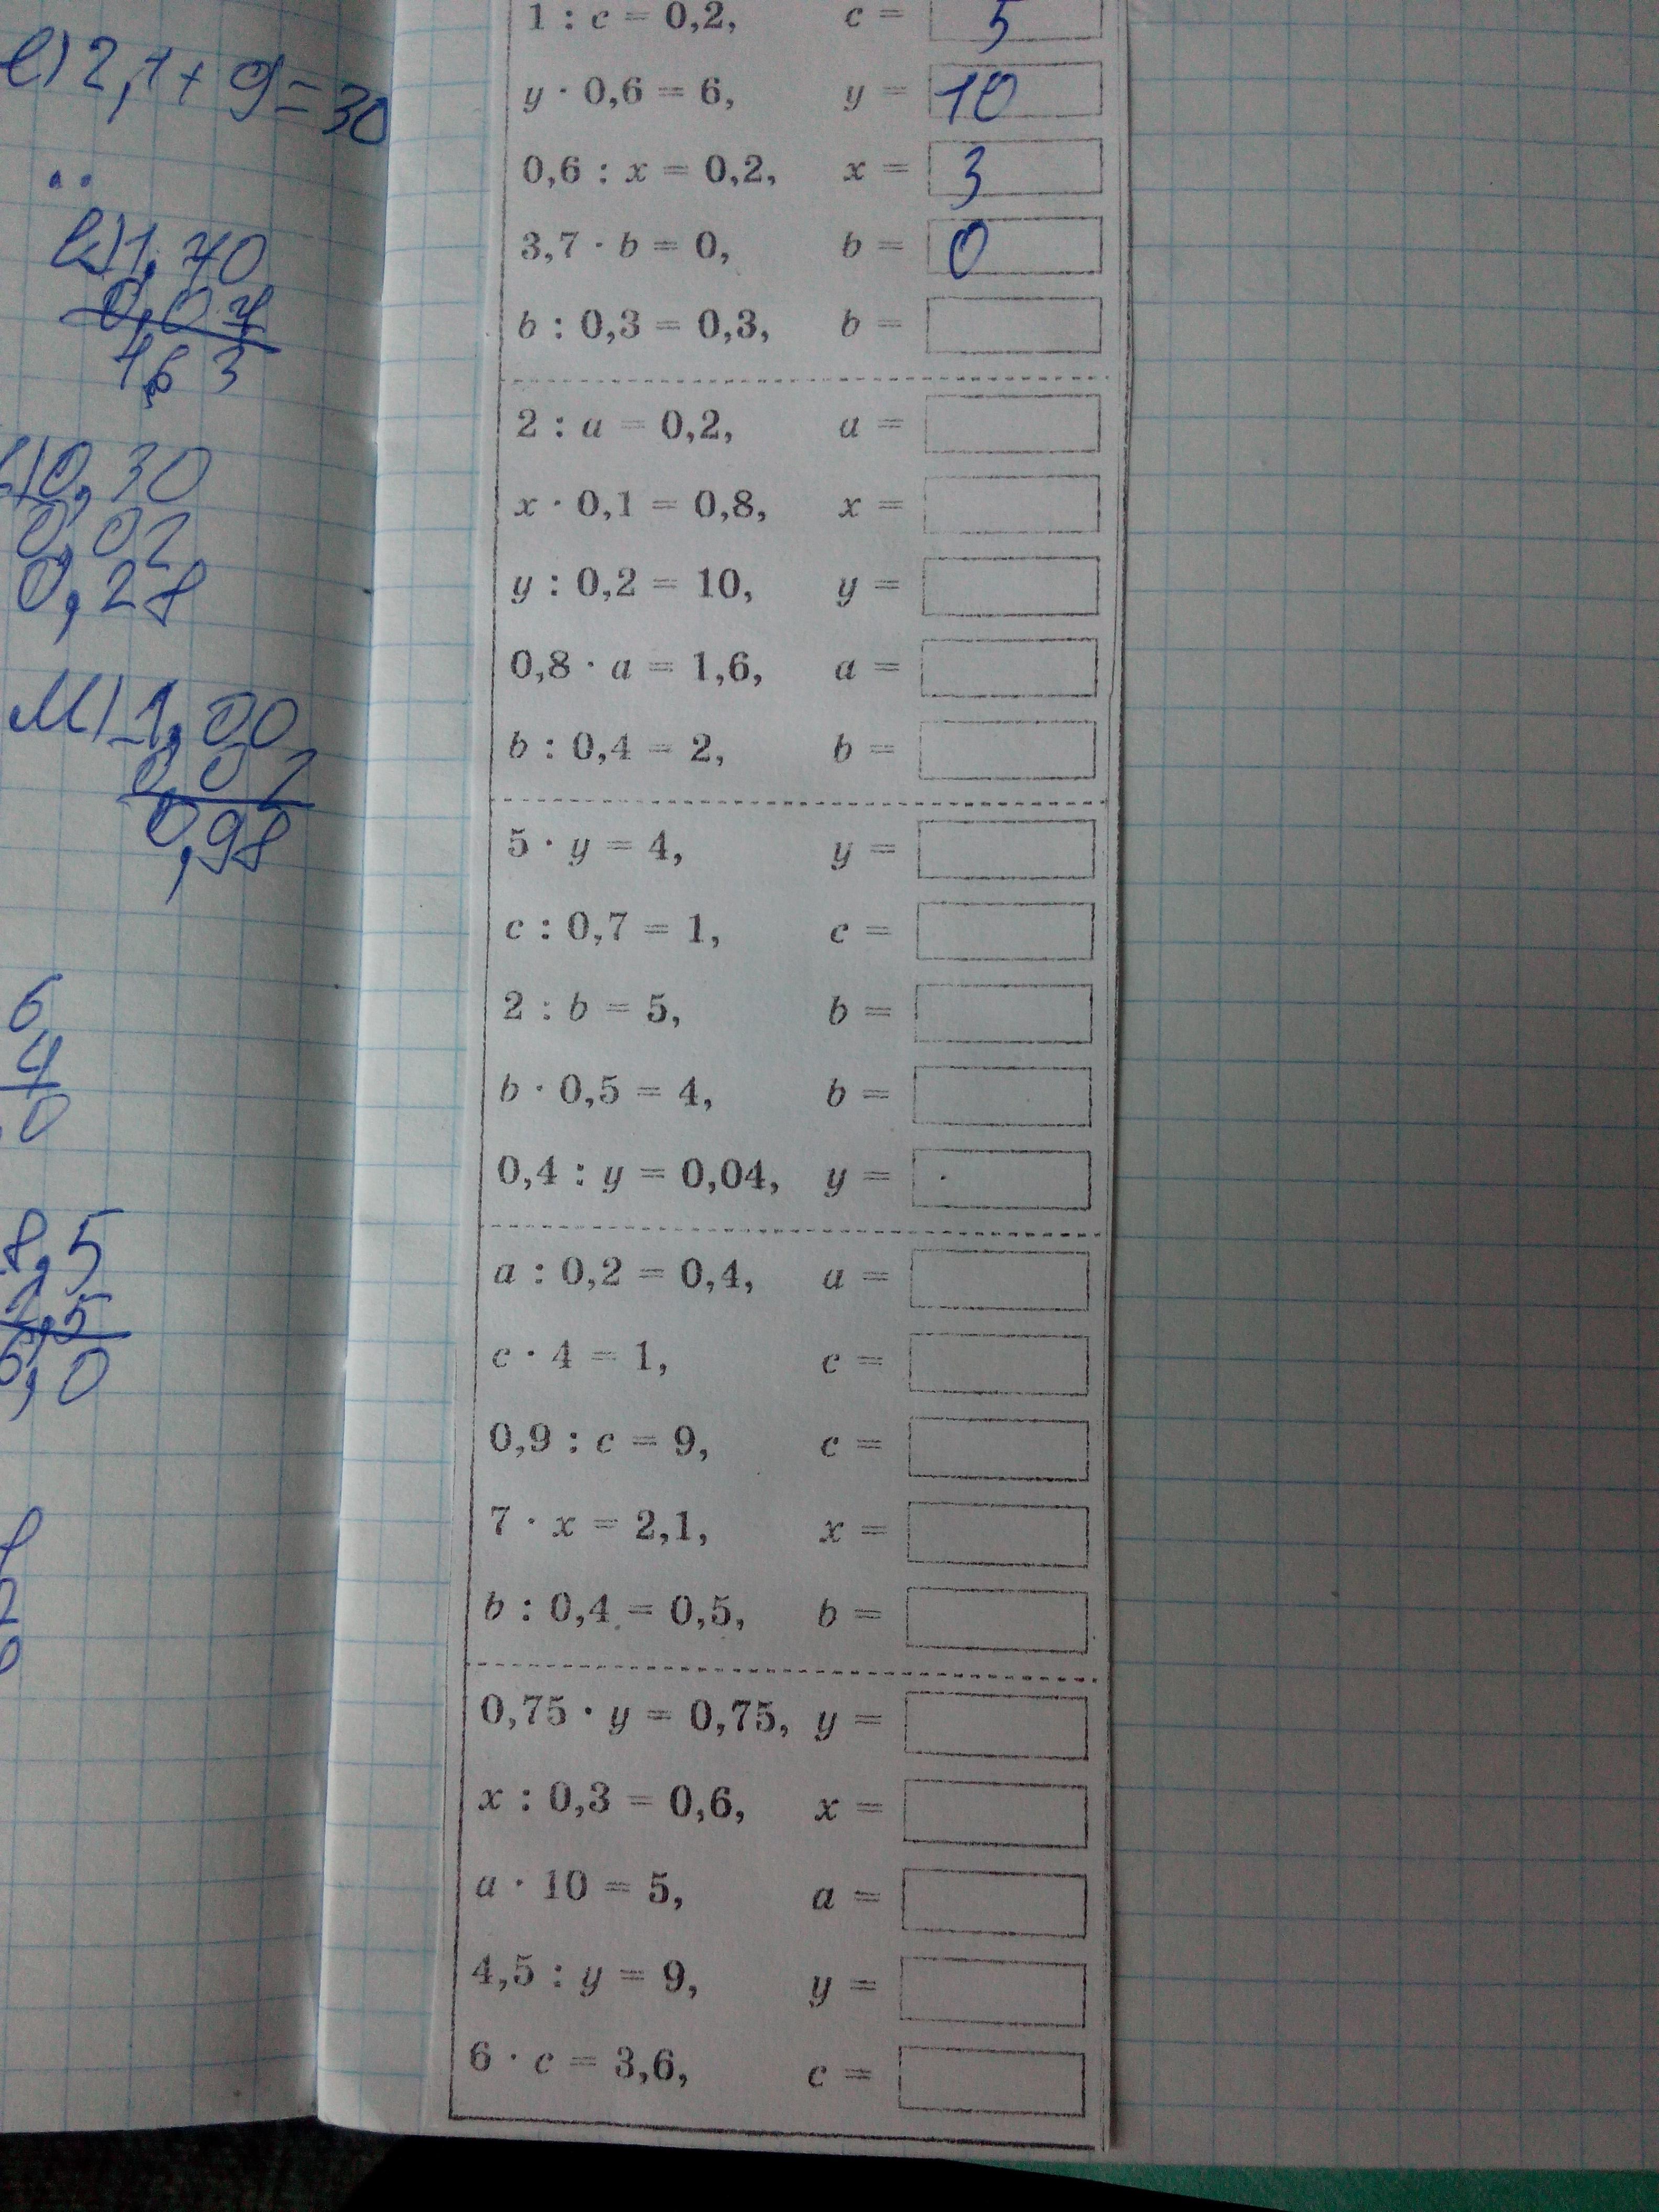 е) 2,1 + 9 = 30
1,70
0,07
1,63
0,30
0,02
0,28
м) 1,00
0,02
0,98
6
4
0
8,5
2,5
6,0
1 : c = 0,2, c = 5
y · 0,6 = 6, y = 10
0,6 : x = 0,2, x = 3
3,7 · b = 0, b = 0
b : 0,3 = 0,3, b =
2 : a = 0,2, a =
x · 0,1 = 0,8, x =
y : 0,2 = 10, y =
0,8 · a = 1,6, a =
b : 0,4 = 2, b =
5 · y = 4, y =
c : 0,7 = 1, c =
2 : b = 5, b =
b · 0,5 = 4, b =
0,4 : y = 0,04, y =
a : 0,2 = 0,4, a =
c · 4 = 1, c =
0,9 : c = 9, c =
7 · x = 2,1, x =
b : 0,4 = 0,5, b =
0,75 · y = 0,75, y =
x : 0,3 = 0,6, x =
a · 10 = 5, a =
4,5 : y = 9, y =
6 · c = 3,6, c =